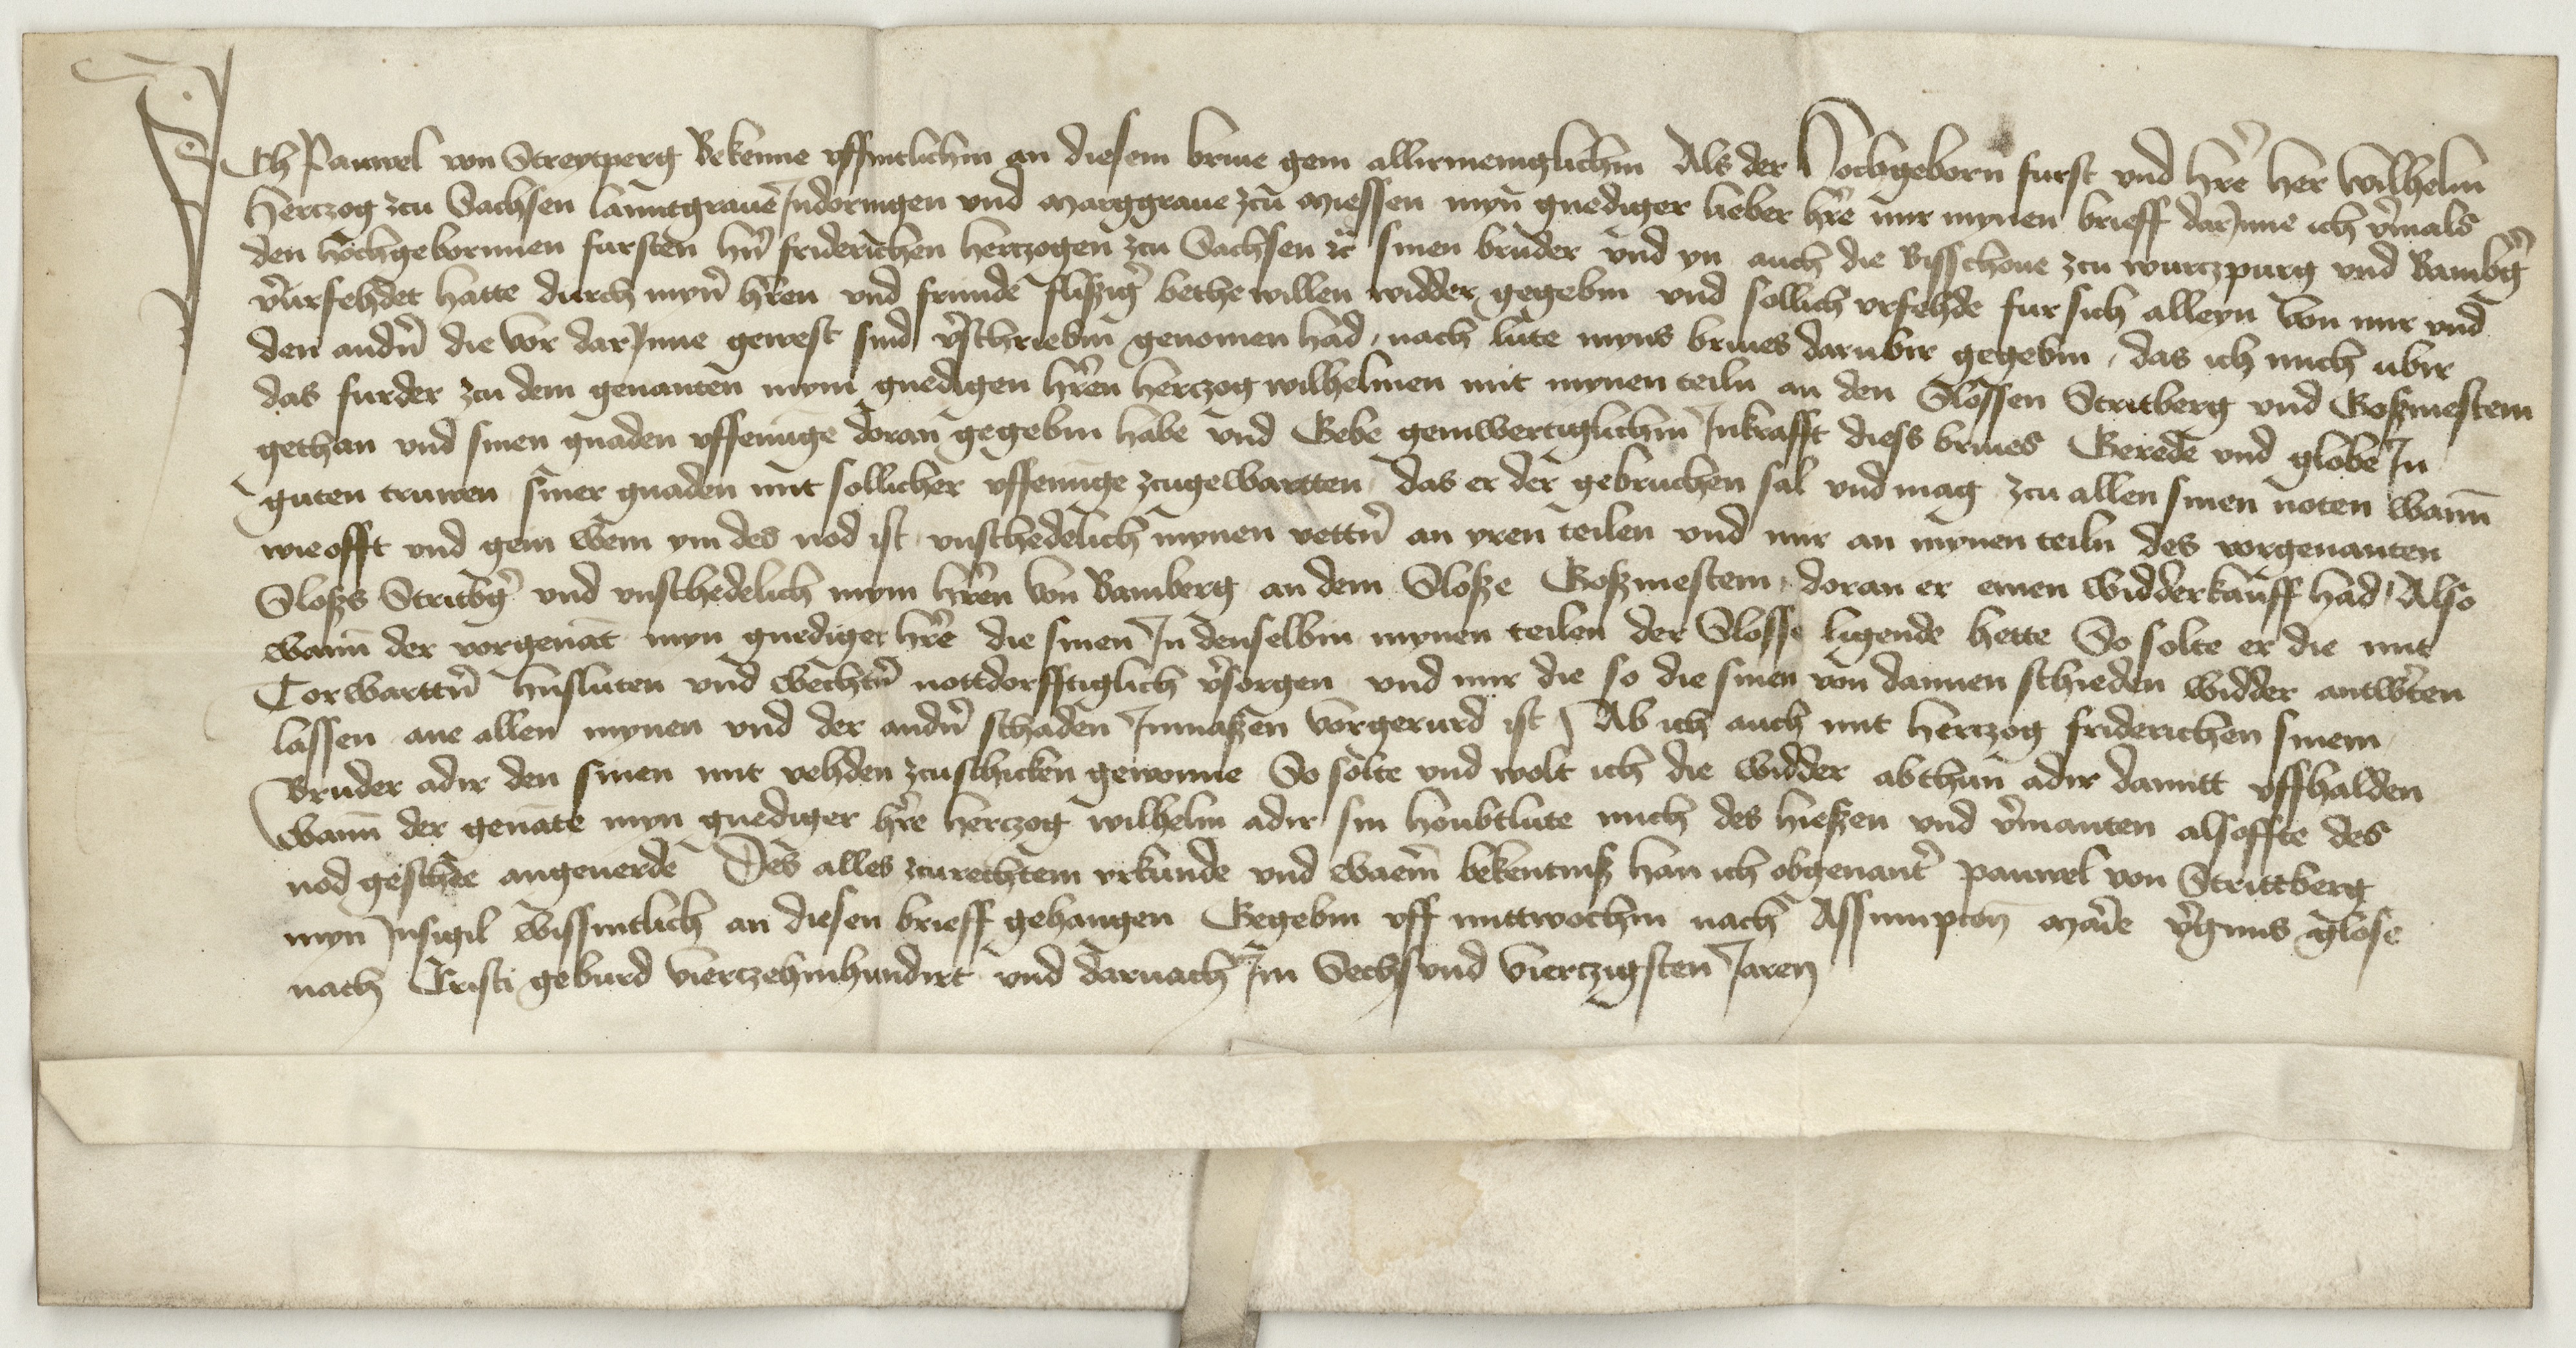 Ich Pauwel von Streytperg Bekenne uffintlichin an diesem brive gein allirmeniglichin Als der Hochgeborn furst und h're her Wilhelm
Herczog zcu Sachsen lanntgrave Indoringen und Marggrave zcu Miessen myn gnediger lieber h're mir mynen brieff dar Inne ich v'mals
den hochgebornnen fursten hn' friderichen herczogen zcu Sachsen ꝛc sinen bruder und yn auch die Bisschove zcu wurczpurg und Bamb'g
v'urfehdet hatte durch myn' h'ren und frunde flißig' bethe willen widder gegebin und sollich urfehde fur sich alleyn von mir und
den andn' die vor dar Inne gewest sind v'schriebin genomen had, nach lute myns brives darubir gegebin, das ich mich ubir
das furder zcu dem genanten mym gnedigen h'ren herczog wilhelmen mit mynen teiln an den Slossen Stritberg und Goßmestein
gethan und sinen gnaden uffenunge doran gegebin habe und Gebe geinwertiglichin Inkrafft diess brives Gerede und globe In
guten truwen siner gnaden mit sollicher uffenunge zcugewartten das er der gebruchen sal und mag zcu allen sinen noten wann
wie offt und gein wem ym des nod ist unschedelich mynen vettn' an yren teilen und mir an mynen teiln des vorgenanten
Sloßs Stritb'g und unschedelich mym h'ren von Bamberg an dem Sloße Goßmestein, doran er einen widderkauff had, Also
wann der vorgenāt myn gnediger h're die sinen In denselbin mynen teilen der Slosse ligende hette So solte er die mit
Torwarttn' husluten und wechtn' nottdorfftiglich v'sorgen und mir die so die sinen von dannen schieden widder antw'ten
lassen ane allen mynen und der andn' schaden Inmaßen vorgerurd ist Ab ich auch mit herczog friderichen sinem
Bruder adir den sinen mit vehden zcuschicken gewonne So solte und wolt ich die widder abthun adir damitt uffhalden
wann der genāte myn gnediger h're herczog wilhelm adir sin houbtlute mich des hießen und v'manten als offte des
nod geschee angeverde Des alles zcurechtem urkunde und waem bekentniß han ich obgenant' pauwel von Strittberg
myn Insigil wissintlich an diesen brieff gehangen Gegebin uff mittwochin nach Assumpcon Marie v'ginis glose
nach Cristi geburd vierczehinhundirt und darnach Im Sechs und vierczigsten Jaren